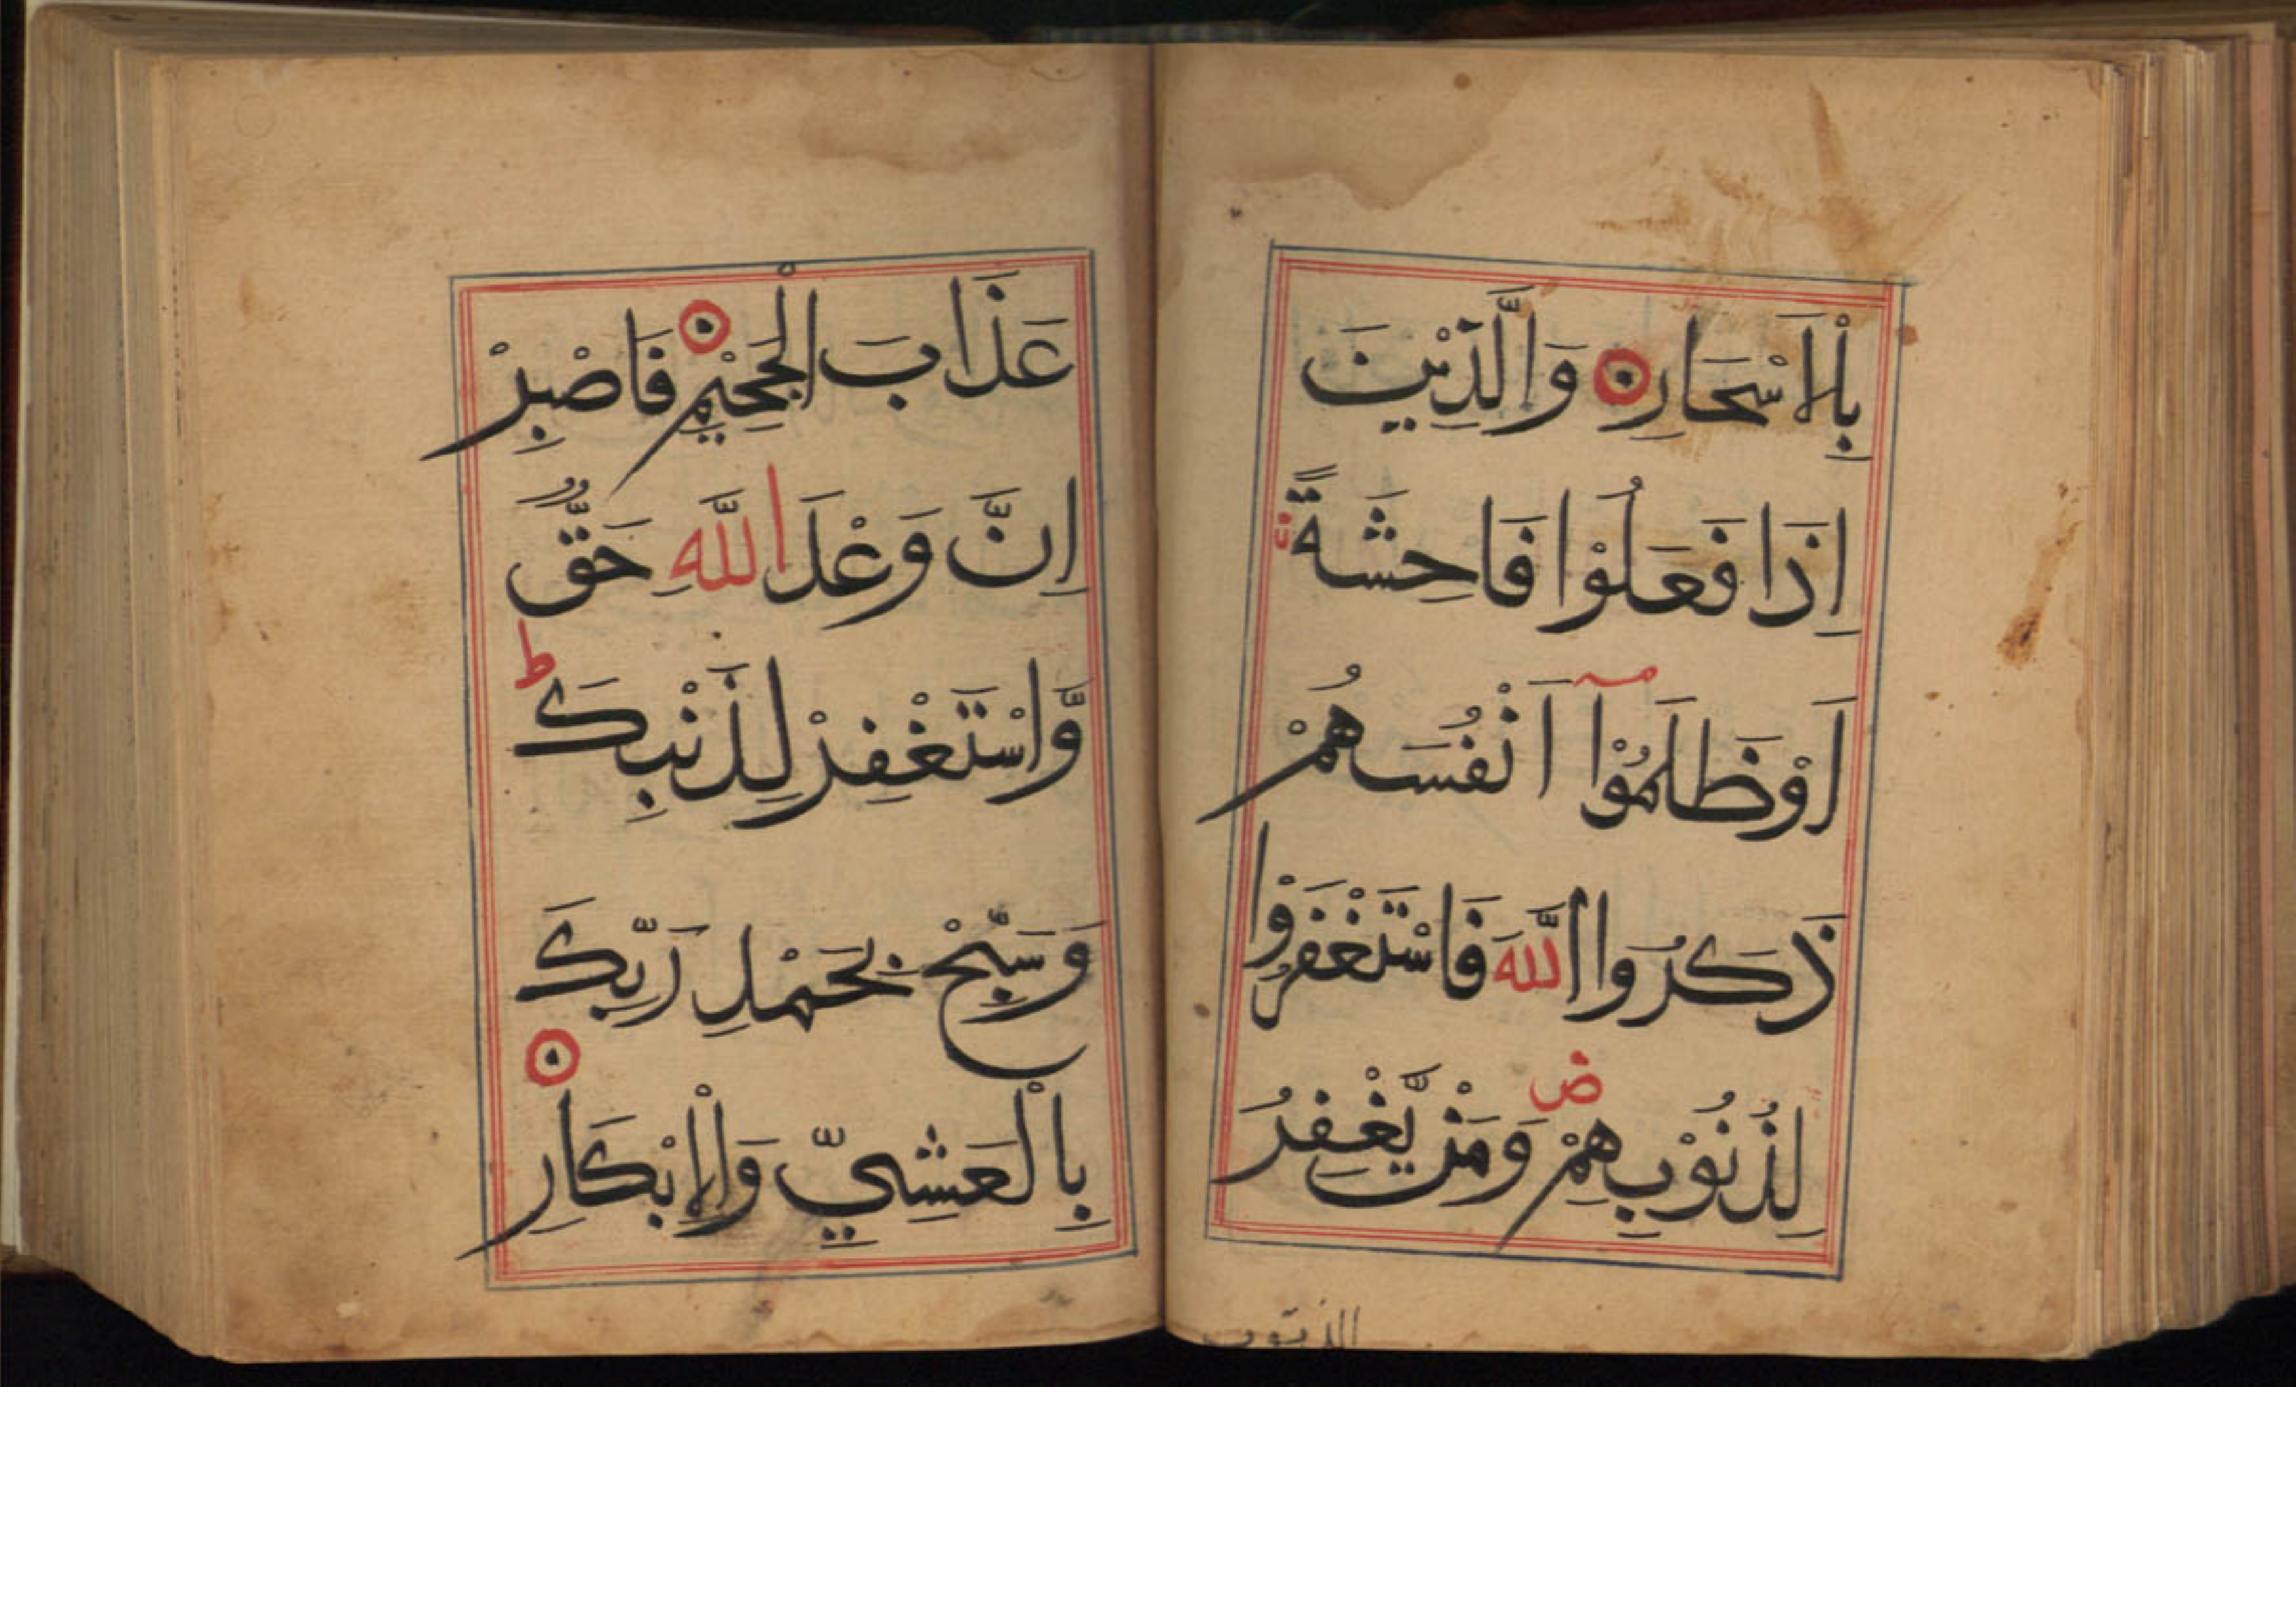 بِالْاَسْحَارِ وَالَّذِيْنَ
اِذَا فَعَلُوْا فَاحِشَةً
اَوْ ظَلَمُوْٓا اَنْفُسَهُمْ
ذَكَرُوا اللّٰهَ فَاسْتَغْفَرُوْا
لِذُنُوْبِهِمْ ض وَمَنْ يَّغْفِرُ
عَذَابَ الْجَحِيْمِ فَاصْبِرْ
اِنَّ وَعْدَ اللّٰهِ حَقٌّ
وَّاسْتَغْفِرْ لِذَنْبِكَ ط
وَسَبِّحْ بِحَمْدِ رَبِّكَ
بِالْعَشِيِّ وَالْاِبْكَارِ